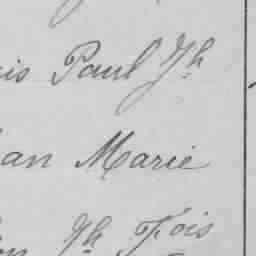 is Paul Jh
an Marie
Jh Fois